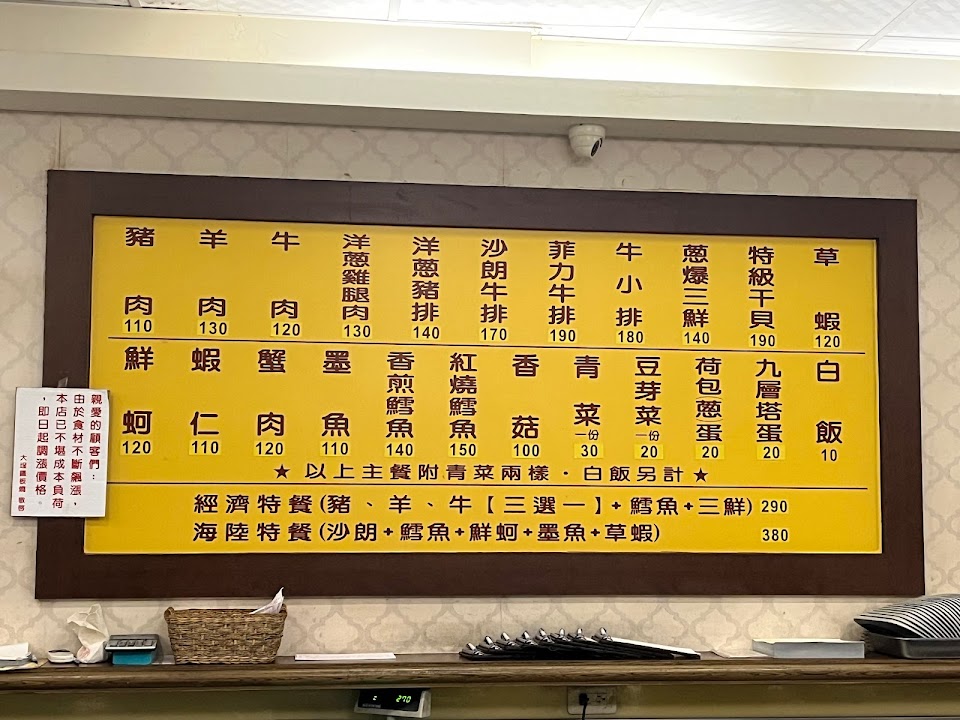 豬肉 110
羊肉 130
牛肉 120
洋蔥雞腿肉 130
洋蔥豬排 140
沙朗牛排 170
菲力牛排 190
牛小排 180
蔥爆三鮮 140
特級干貝 190
草蝦 120
鮮蚵 120
蝦仁 110
蟹肉 120
墨魚 110
香煎鱈魚 140
紅燒鱈魚 150
香菇 100
青菜 一份 30
豆芽菜 一份 20
荷包蔥蛋 20
九層塔蛋 20
白飯 10
★ 以上主餐附青菜兩樣．白飯另計 ★
經濟特餐(豬、羊、牛【三選一】+鱈魚+三鮮) 290
海陸特餐(沙朗+鱈魚+鮮蚵+墨魚+草蝦) 380
親愛的顧客們：
由於食材不斷飆漲，
本店已不堪成本負荷
，即日起調漲價格。
270